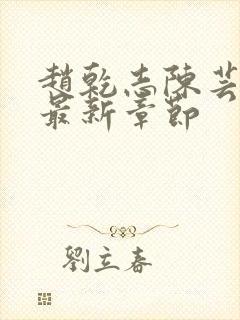 趙乾志陳芸
最新章節
劉立春